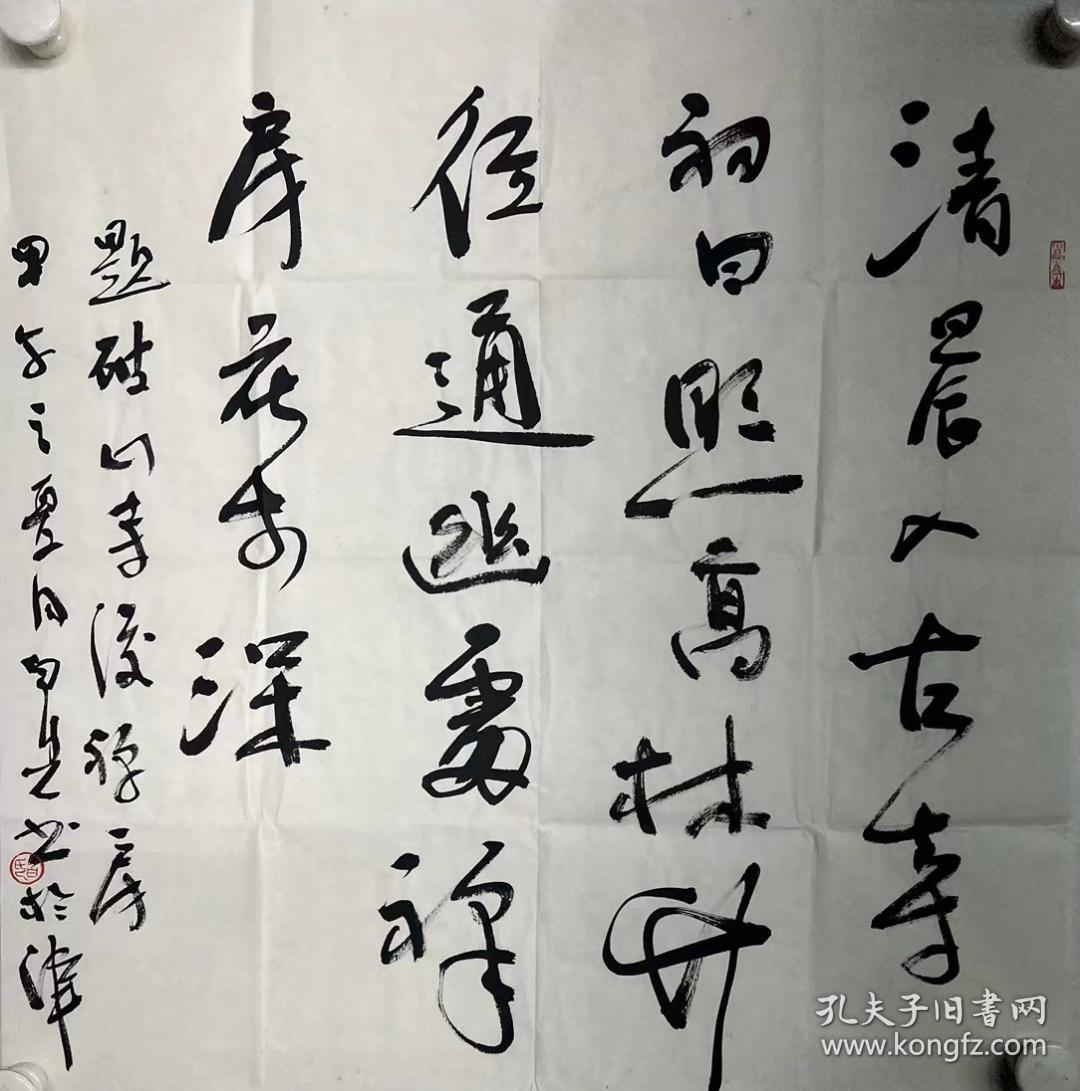 清晨入古寺
初日照高林竹
径通幽處禅
房花木深
題破山寺後禅房
甲午之夏月书於津
孔夫子旧书网
www.kongfz.com